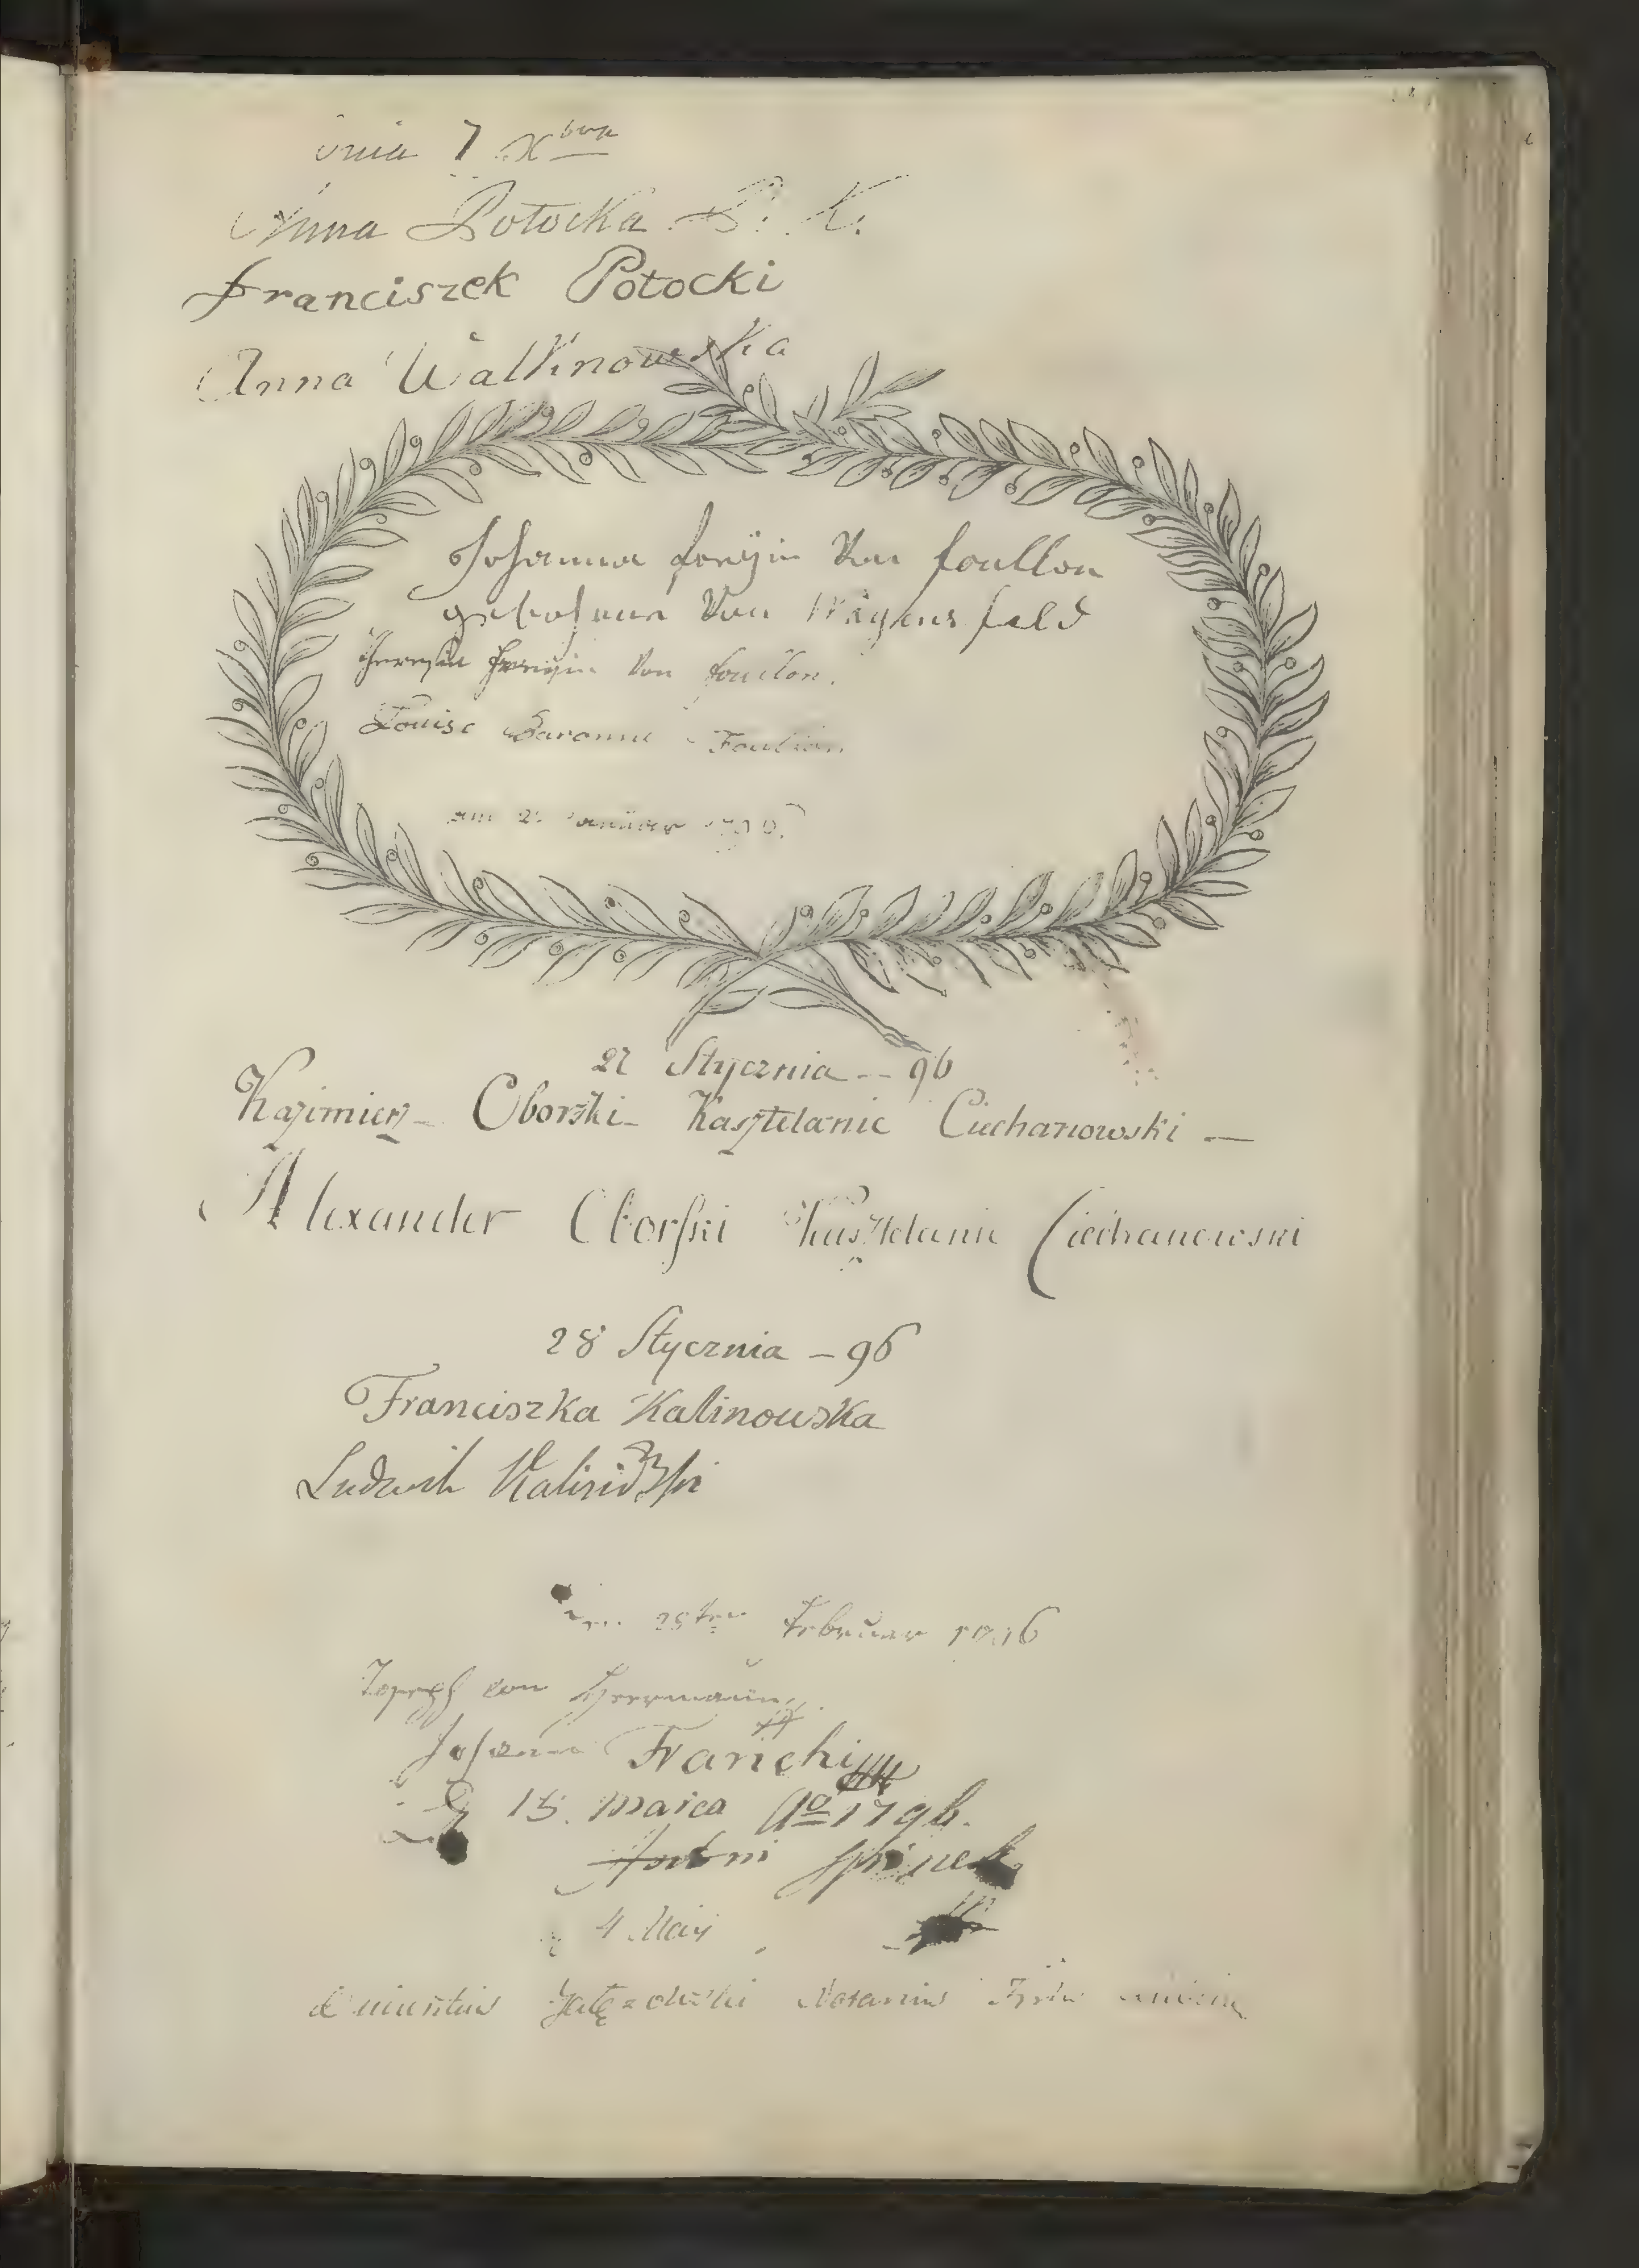 dnia 7 Xbra
Anna Potocka P. K.
Franciszek Potocki
Anna Walknowska
Johanna freÿin Von foullon
gebohrne Von Wagensfeld
Theresia freyin Von foullon.
Louise Baronne Foullon
am Januar
27 Stycznia -- 96
Kazimierz - Oborski - Kasztelanic Ciechanowski —
Alexander Oborski Kasztelanic Ciechanowski
28 Stycznia - 96
Franciszka Kalinowska
Ludwik Kalinowski
Februar 1796
Joseph von Herrmann
Johann Franchi
D 15. marca Ao 1796.
Antoni
4 Maÿ
Notarius